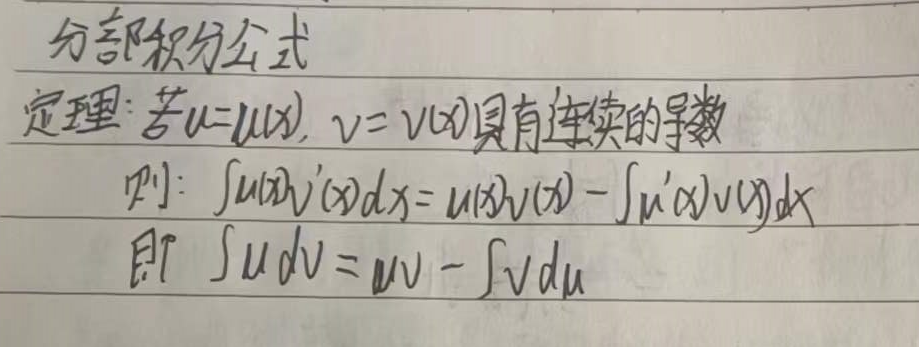 分部积分公式
定理: 若u=u(x), v=v(x)具有连续的导数
则: ∫u(x)v'(x)dx=u(x)v(x)-∫u'(x)v(x)dx
即 ∫udv=uv-∫vdu